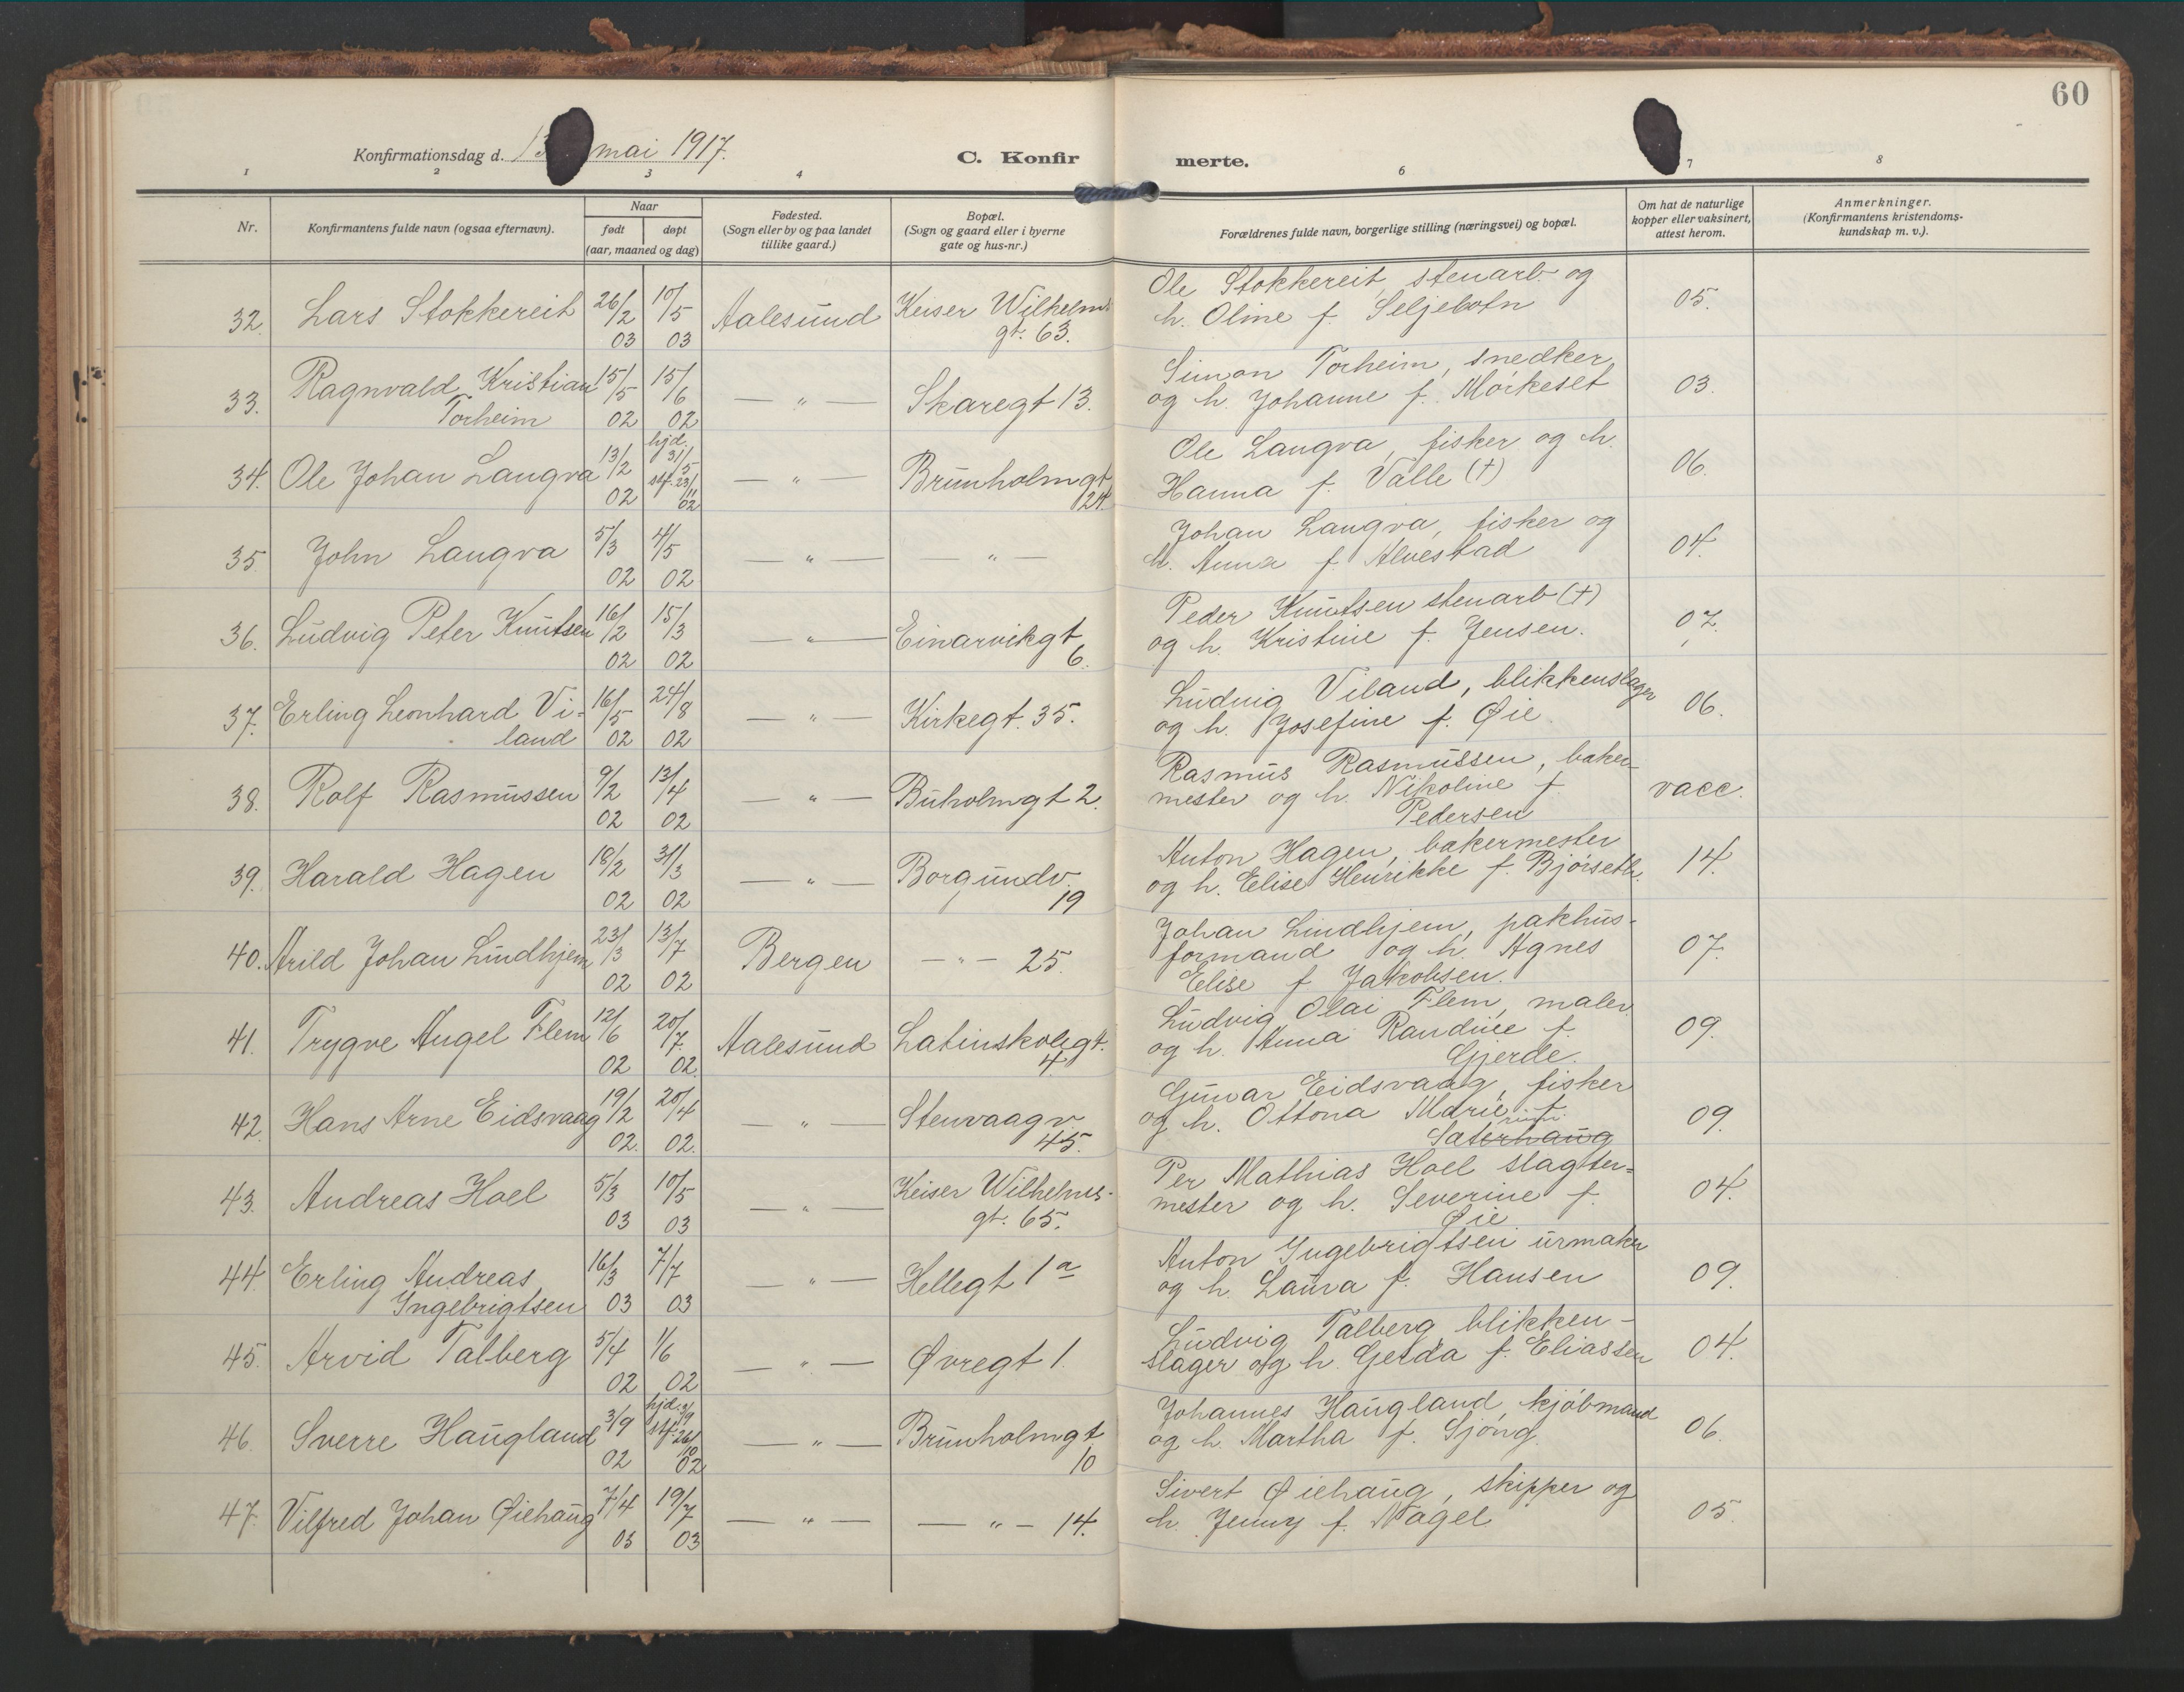 60
Konfirmationsdag d. 13 mai 1917.
C. Konfirmerte.
1 2 3 4 6 7 8
Nr.
Konfirmantens fulde navn (ogsaa efternavn).
Naar
født døpt
(aar, maaned og dag)
Fødested.
(Sogn eller by og paa landet
tillike gaard.)
Bopæl.
(Sogn og gaard eller i byerne
gate og hus-nr.)
Forældrenes fulde navn, borgerlige stilling (næringsvei) og bopæl.
Om hat de naturlige
kopper eller vaksinert,
attest herom.
Anmerkninger.
(Konfirmantens kristendoms-
kundskap m. v.).
32. Lars Stokkereit 26/2 03 10/5 03 Aalesund Keiser Wilhelms
gt. 63.
Ole Stokkereit, stenarb. og
h. Oline f. Seljebotn
05.
33. Ragnvald Kristian
Torheim
15/5 02 15/6 02 — " — Skaregt 13.
Simon Torheim, snedker,
og h. Johanne f. Mørkeset
03.
34. Ole Johan Langva 13/2 02 hjd. 31/5 stf. 23/11 02 — " — Brunholmgt
24.
Ole Langva, fisker og h.
Hanna f. Valle (†)
06.
35. John Langva 5/3 02 4/5 02 — " — " —
Johan Langva, fisker og
h. Anna f. Alvestad
04.
36. Ludvig Peter Knutsen 16/2 02 15/3 02 — " — Einarvikgt
6.
Peder Knutsen stenarb (†)
og h. Kristine f. Jensen.
07.
37. Erling Leonhard Vi-
land
16/5 02 24/8 02 — " — Kirkegt. 35.
Ludvig Viland, blikkenslager
og h. Josefine f. Øie.
06.
38. Rolf Rasmussen 9/2 02 13/4 02 — " — Buholmgt 2.
Rasmus Rasmussen, baker-
mester og h. Nikoline f.
Pedersen
vacc.
39. Harald Hagen 18/2 02 31/3 02 — " — Borgundv.
19
Anton Hagen, bakermester
og h. Elise Henrikke f. Bjørseth.
14.
40. Arild Johan Lindhjem 23/3 02 13/7 02 Bergen — " — 25.
Johan Lindhjem, pakhus-
formand og h. Agnes
Elise f. Jakobsen.
07.
41. Trygve Angel Flem 12/6 02 20/7 02. Aalesund Latinskolegt.
4.
Ludvig Olai Flem, maler
og h. Anna Randine f.
Gjerde.
09.
42. Hans Arne Eidsvaag 19/2 02. 20/4 02. — " — Stenvaagv.
45.
Gunnar Eidsvaag, fisker
og h. Ottona Marie f.
Saterhaug
09.
43. Andreas Hoel 5/3 03 10/5 03 — " — Keiser Wilhelms-
gt. 65.
Per Mathias Hoel slagter-
mester og h. Severine f.
Øie
04.
44. Erling Andreas
Ingebrigtsen
16/3 03 7/7 03 — " — Hellegt 1a
Anton Ingebrigtsen urmaker
og h. Laura f. Hansen
09.
45. Arvid Talberg 5/4 02 1/6 02 — " — Øvregt 1.
Ludvig Talberg blikken-
slager og h. Gerda f. Eliassen
04.
46. Sverre Haugland 3/9 02 hjd. 9/9 stf. 26/10 02 — " — Brunholmgt
10
Johannes Haugland, kjøbmand
og h. Martha f. Gjöng.
06.
47. Vilfred Johan Øiehaug 7/4 03 19/7 03 — " — — " — 14.
Sivert Øiehaug, skipper og
h. Jenny f. Nagel
05.